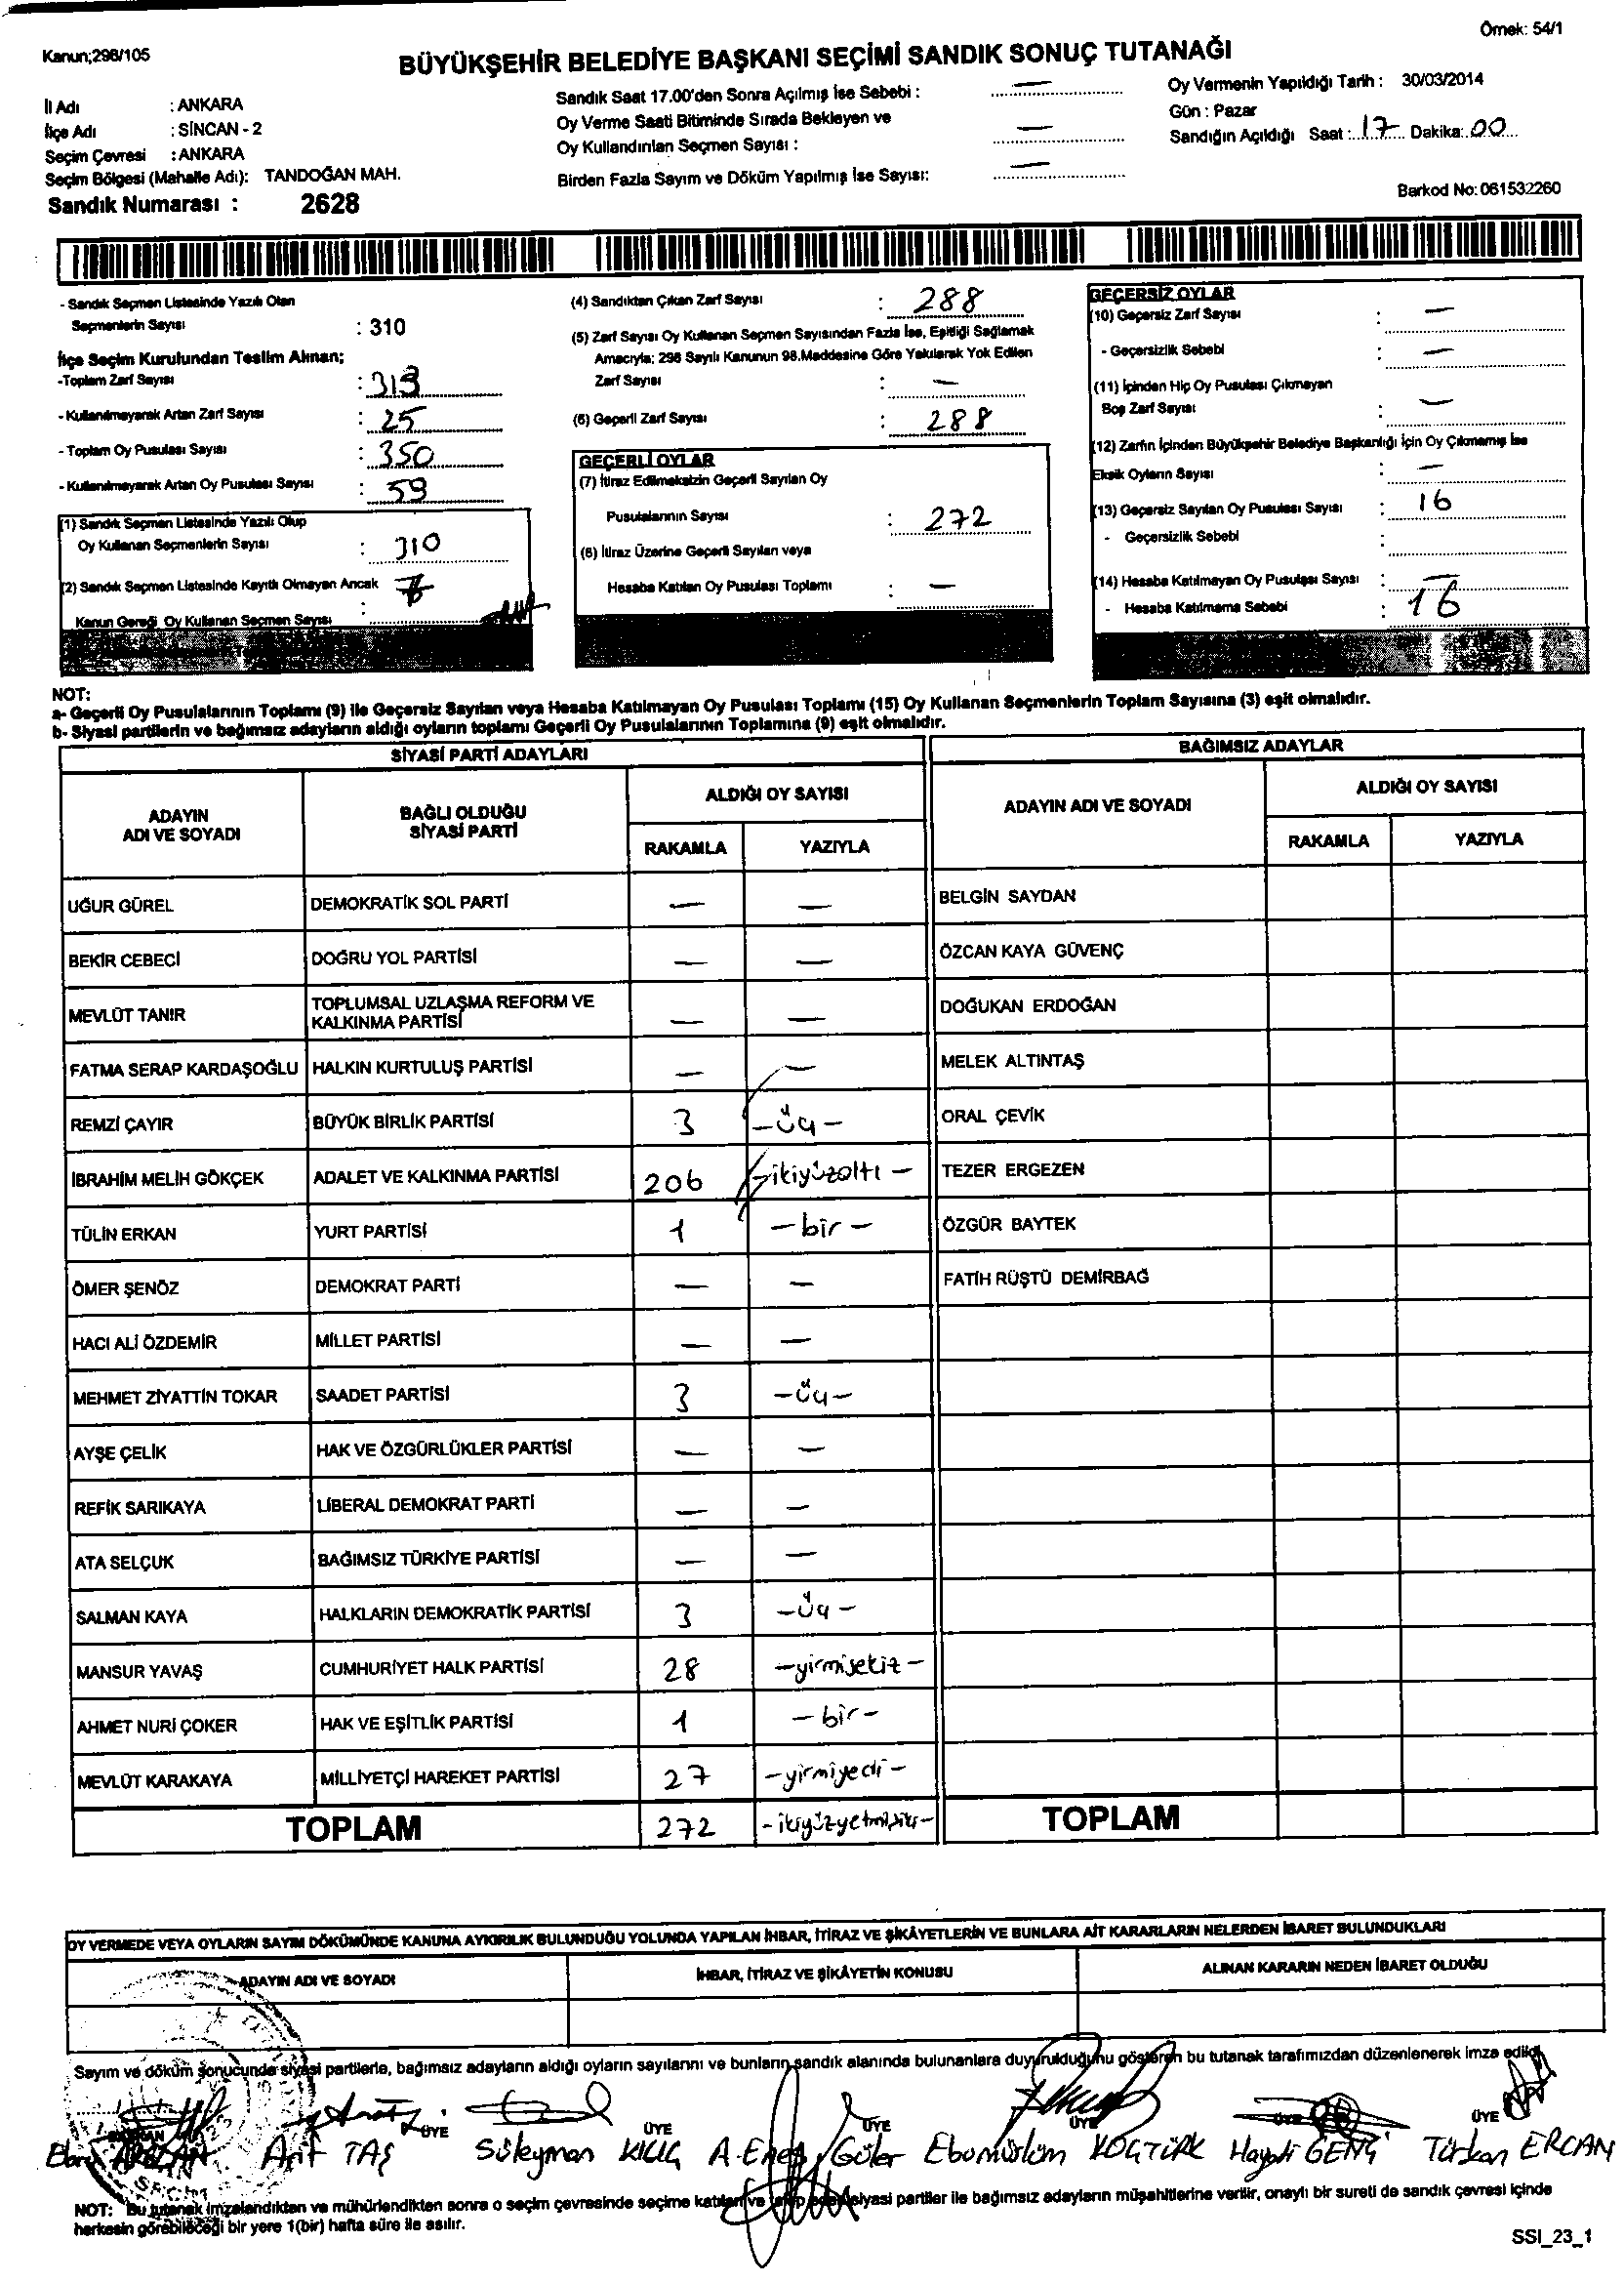 Örnek: 54/1
Kanun;298/105
BÜYÜKŞEHİR BELEDİYE BAŞKANI SEÇİMİ SANDIK SONUÇ TUTANAĞI
İl Adı : ANKARA
İlçe Adı : SİNCAN - 2
Seçim Çevresi : ANKARA
Seçim Bölgesi (Mahalle Adı): TANDOĞAN MAH.
Sandık Numarası : 2628
Sandık Saat 17.00'den Sonra Açılmış İse Sebebi : —
Oy Verme Saati Bitiminde Sırada Bekleyen ve
Oy Kullandırılan Seçmen Sayısı : —
Birden Fazla Sayım ve Döküm Yapılmış İse Sayısı: —
Oy Vermenin Yapıldığı Tarih : 30/03/2014
Gün : Pazar
Sandığın Açıldığı Saat : 17 Dakika: 00
Barkod No: 061532260
- Sandık Seçmen Listesinde Yazılı Olan
Seçmenlerin Sayısı : 310
İlçe Seçim Kurulundan Teslim Alınan;
-Toplam Zarf Sayısı : 313
- Kullanılmayarak Artan Zarf Sayısı : 25
- Toplam Oy Pusulası Sayısı : 350
- Kullanılmayarak Artan Oy Pusulası Sayısı : 59
(1) Sandık Seçmen Listesinde Yazılı Olup
Oy Kullanan Seçmenlerin Sayısı : 310
(2) Sandık Seçmen Listesinde Kayıtlı Olmayan Ancak
Kanun Gereği Oy Kullanan Seçmen Sayısı :
(4) Sandıktan Çıkan Zarf Sayısı : 288
(5) Zarf Sayısı Oy Kullanan Seçmen Sayısından Fazla İse, Eşitliği Sağlamak
Amacıyla; 298 Sayılı Kanunun 98.Maddesine Göre Yakılarak Yok Edilen
Zarf Sayısı : —
(6) Geçerli Zarf Sayısı : 288
GEÇERLİ OYLAR
(7) İtiraz Edilmeksizin Geçerli Sayılan Oy
Pusulalarının Sayısı : 272
(8) İtiraz Üzerine Geçerli Sayılan veya
Hesaba Katılan Oy Pusulası Toplamı : —
GEÇERSİZ OYLAR
(10) Geçersiz Zarf Sayısı : —
- Geçersizlik Sebebi : —
(11) İçinden Hiç Oy Pusulası Çıkmayan
Boş Zarf Sayısı : —
(12) Zarfın İçinden Büyükşehir Belediye Başkanlığı İçin Oy Çıkmamış İse
Eksik Oyların Sayısı : —
(13) Geçersiz Sayılan Oy Pusulası Sayısı : 16
- Geçersizlik Sebebi :
(14) Hesaba Katılmayan Oy Pusulası Sayısı : —
- Hesaba Katılmama Sebebi : 16
NOT:
a- Geçerli Oy Pusulalarının Toplamı (9) ile Geçersiz Sayılan veya Hesaba Katılmayan Oy Pusulası Toplamı (15) Oy Kullanan Seçmenlerin Toplam Sayısına (3) eşit olmalıdır.
b- Siyasi partilerin ve bağımsız adayların aldığı oyların toplamı Geçerli Oy Pusulalarının Toplamına (9) eşit olmalıdır.
SİYASİ PARTİ ADAYLARI
ADAYIN ADI VE SOYADI BAĞLI OLDUĞU SİYASİ PARTİ ALDIĞI OY SAYISI
RAKAMLA YAZIYLA
UĞUR GÜREL DEMOKRATİK SOL PARTİ — —
BEKİR CEBECİ DOĞRU YOL PARTİSİ — —
MEVLÜT TANIR TOPLUMSAL UZLAŞMA REFORM VE KALKINMA PARTİSİ — —
FATMA SERAP KARDAŞOĞLU HALKIN KURTULUŞ PARTİSİ — —
REMZİ ÇAYIR BÜYÜK BİRLİK PARTİSİ 3 -üç-
İBRAHİM MELİH GÖKÇEK ADALET VE KALKINMA PARTİSİ 206 -ikiyüzaltı-
TÜLİN ERKAN YURT PARTİSİ 1 -bir-
ÖMER ŞENÖZ DEMOKRAT PARTİ — —
HACI ALİ ÖZDEMİR MİLLET PARTİSİ — —
MEHMET ZİYATTİN TOKAR SAADET PARTİSİ 3 -üç-
AYŞE ÇELİK HAK VE ÖZGÜRLÜKLER PARTİSİ — —
REFİK SARIKAYA LİBERAL DEMOKRAT PARTİ — —
ATA SELÇUK BAĞIMSIZ TÜRKİYE PARTİSİ — —
SALMAN KAYA HALKLARIN DEMOKRATİK PARTİSİ 3 -üç-
MANSUR YAVAŞ CUMHURİYET HALK PARTİSİ 28 -yirmisekiz-
AHMET NURİ ÇOKER HAK VE EŞİTLİK PARTİSİ 1 -bir-
MEVLÜT KARAKAYA MİLLİYETÇİ HAREKET PARTİSİ 27 -yirmiyedi-
TOPLAM 272 -ikiyüzyetmişiki-
BAĞIMSIZ ADAYLAR
ADAYIN ADI VE SOYADI ALDIĞI OY SAYISI
RAKAMLA YAZIYLA
BELGİN SAYDAN
ÖZCAN KAYA GÜVENÇ
DOĞUKAN ERDOĞAN
MELEK ALTINTAŞ
ORAL ÇEVİK
TEZER ERGEZEN
ÖZGÜR BAYTEK
FATİH RÜŞTÜ DEMİRBAĞ
TOPLAM
OY VERMEDE VEYA OYLARIN SAYIM DÖKÜMÜNDE KANUNA AYKIRILIK BULUNDUĞU YOLUNDA YAPILAN İHBAR, İTİRAZ VE ŞİKÂYETLERİN VE BUNLARA AİT KARARLARIN NELERDEN İBARET BULUNDUKLARI
ADAYIN ADI VE SOYADI İHBAR, İTİRAZ VE ŞİKÂYETİN KONUSU ALINAN KARARIN NEDEN İBARET OLDUĞU
Sayım ve döküm sonucunda siyasi partilerle, bağımsız adayların aldığı oyların sayılarını ve bunların sandık alanında bulunanlara duyurulduğunu gösteren bu tutanak tarafımızdan düzenlenerek imza edildi.
BAŞKAN ÜYE ÜYE ÜYE ÜYE ÜYE ÜYE
ARSLAN Arif TAŞ Süleyman KILIÇ A.Enes Güler Ebamüslüm KÖGTÜRK Hayati GENÇ Türkan ERCAN
NOT: Bu tutanak imzalandıktan ve mühürlendikten sonra o seçim çevresinde seçime katılan ve talep eden siyasi partiler ile bağımsız adayların müşahitlerine verilir, onaylı bir sureti de sandık çevresi içinde
herkesin görebileceği bir yere 1(bir) hafta süre ile asılır.
SSI_23_1